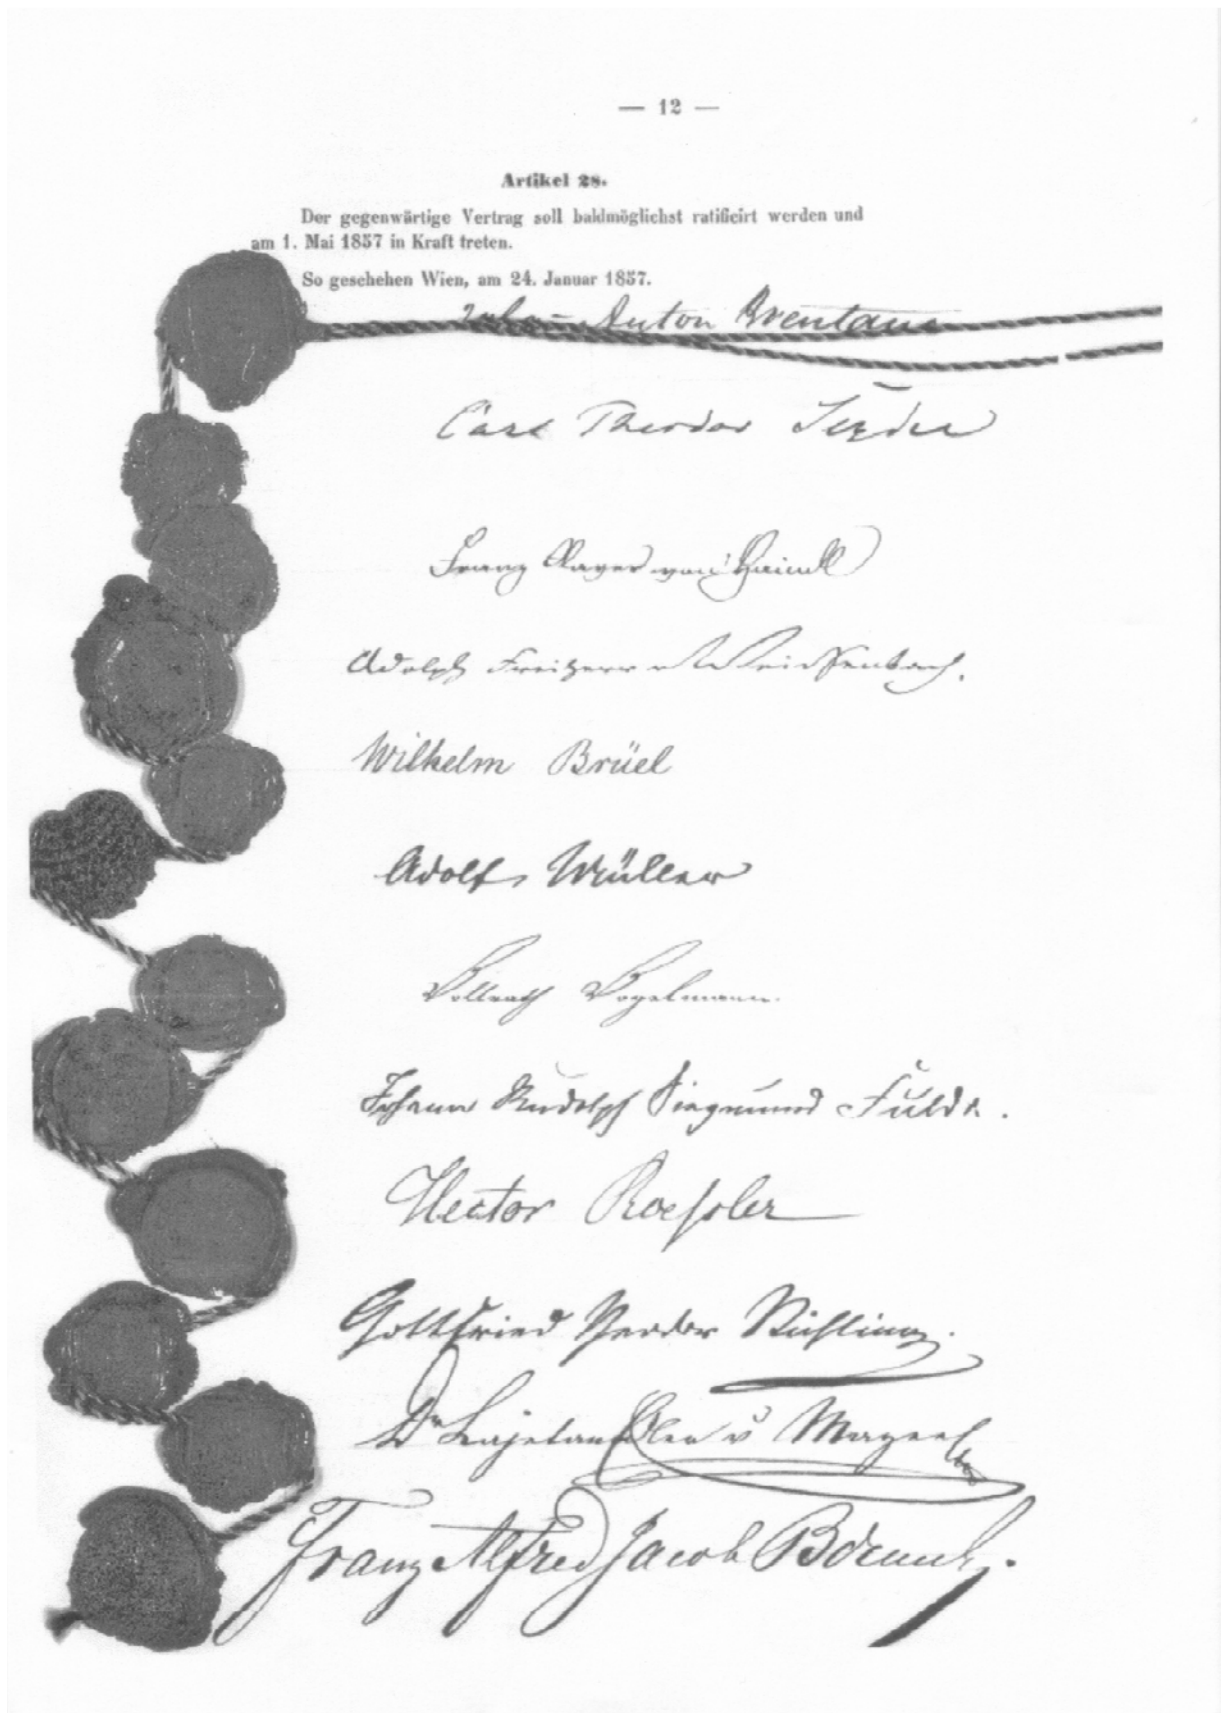 — 12 —
Artikel 28.
Der gegenwärtige Vertrag soll baldmöglichst ratificirt werden und
am 1. Mai 1857 in Kraft treten.
So geschehen Wien, am 24. Januar 1857.
Anton Brentano
Carl Theodor
Franz von
Adolph Freiherr v Weissenbach.
Wilhelm Brüel
Adolf Müller
Vollrath Vogelmann.
Johann Rudolph Siegmund Fulda.
Hector Roessler
Gottfried Theodor Stichling.
Dr Cajetan Edler v Mayer
Franz Alfred Jacob Bernus.